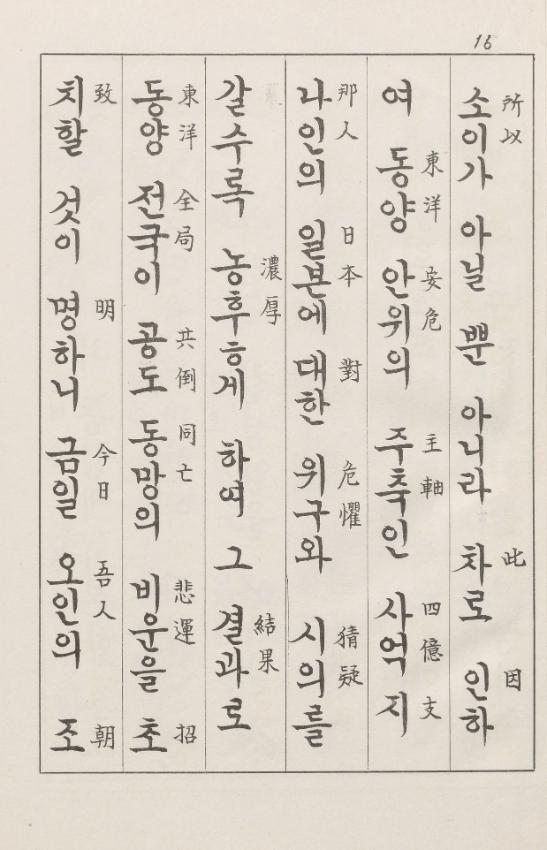 16
소이가 아닐 뿐 아니라 차로 인하
所以 此 因
여 동양 안위의 주축인 사억 지
東洋 安危 主軸 四億 支
나인의 일본에 대한 위구와 시의를
那人 日本 對 危懼 猜疑
갈수록 농후ㅎ게 하여 그 결과로
濃厚 結果
동양 전국이 공도 동망의 비운을 초
東洋 全局 共倒 同亡 悲運 招
치할 것이 명하니 금일 오인의 조
致 明 今日 吾人 朝